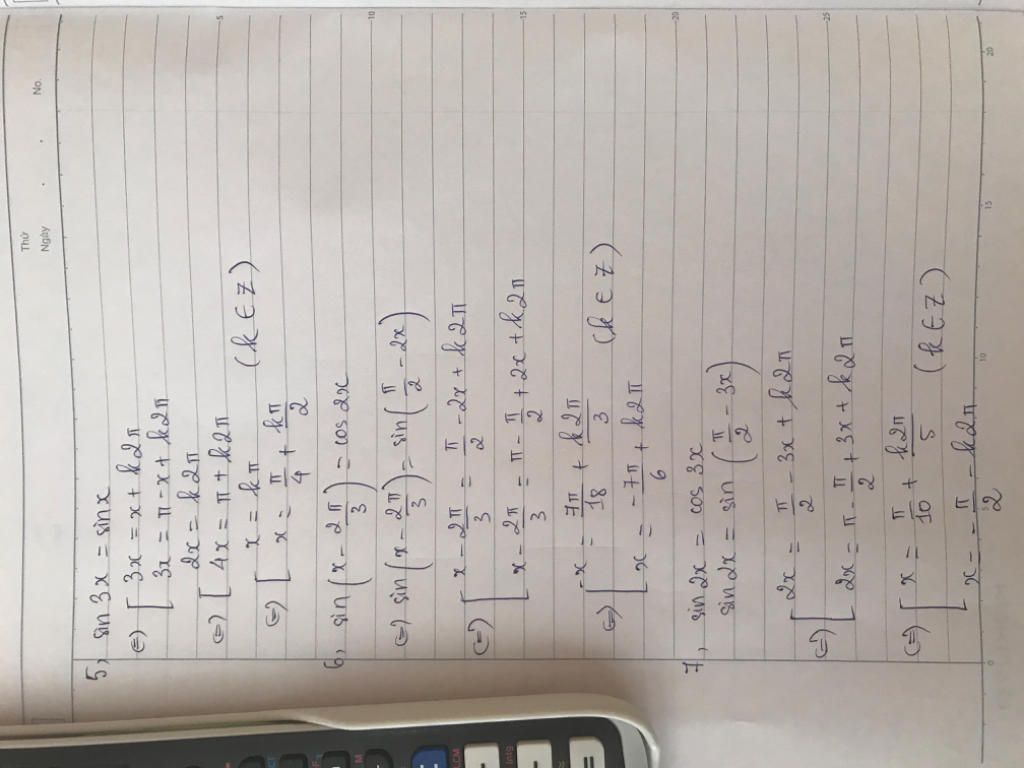 Thứ
Ngày . . No.
5, sin 3x = sin x
⇔ [ 3x = x + k2π
3x = π - x + k2π
⇔ [ 2x = k2π
4x = π + k2π
⇔ [ x = kπ
x = π/4 + kπ/2 (k ∈ Z)
6, sin (x - 2π/3) = cos 2x
⇔ sin (x - 2π/3) = sin (π/2 - 2x)
⇔ [ x - 2π/3 = π/2 - 2x + k2π
x - 2π/3 = π - π/2 + 2x + k2π
⇔ [ x = 7π/18 + k2π/3
x = -7π/6 + k2π (k ∈ Z)
7, sin 2x = cos 3x
sin 2x = sin (π/2 - 3x)
⇔ [ 2x = π/2 - 3x + k2π
2x = π - π/2 + 3x + k2π
⇔ [ x = π/10 + k2π/5
x = - π/2 - k2π (k ∈ Z)
5
10
15
20
25
0
5
10
15
20
M
LCM
Intg
=